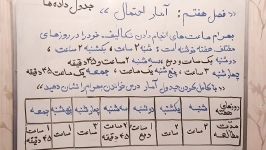 «فصل هفتم: آمار احتمال» جدول داده‌ها
بهرام ساعت‌های انجام دادن تکالیف خود را در روزهای
مختلف هفته نوشته است: شنبه ۲ ساعت، یکشنبه ۳ ساعت،
دوشنبه یک ساعت و ربع، سه‌شنبه ۲ ساعت و ۴۵ دقیقه
چهارشنبه ۳ ساعت، پنج‌شنبه یک ساعت، جمعه ۴۵ دقیقه
با کامل کردن جدول آمار درس خواندن بهرام را نشان دهید.
روزهای هفته شنبه یکشنبه دوشنبه سه‌شنبه چهارشنبه پنج‌شنبه جمعه
مدت مطالعه ۲ ساعت ۳ ساعت ۱ ساعت ۲ ساعت ۳ ساعت ۱ ساعت ۴۵ دقیقه